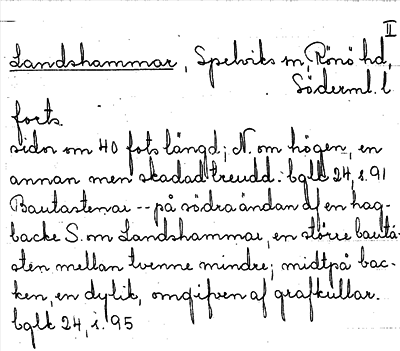 II
Landshammar, Spelviks sn, Rönö hd,
Söderml. l
forts.
sidor om 40 fots längd; N. om högen, en
annan men skadad treudd. bglk 24, s. 91
Bautastenar -- på södra ändan af en hag-
backe S. om Landshammar, en större bauta-
sten mellan tvenne mindre; midtpå bac-
ken, en dylik, omgifven af grafkullar.
bglk 24, s. 95